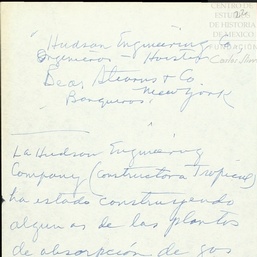 CENTRO DE
ESTUDIOS
DE HISTORIA
DE MEXICO
FUNDACIÓN
Carlos Slim
22
Hudson Engineering Co
Engineeros Houston
Bear Stearns & Co
New York
Banqueros.
La Hudson Engineering
Company (Constructora Tropical)
ha estado construyendo
algunas de las plantas
de absorpción de gas